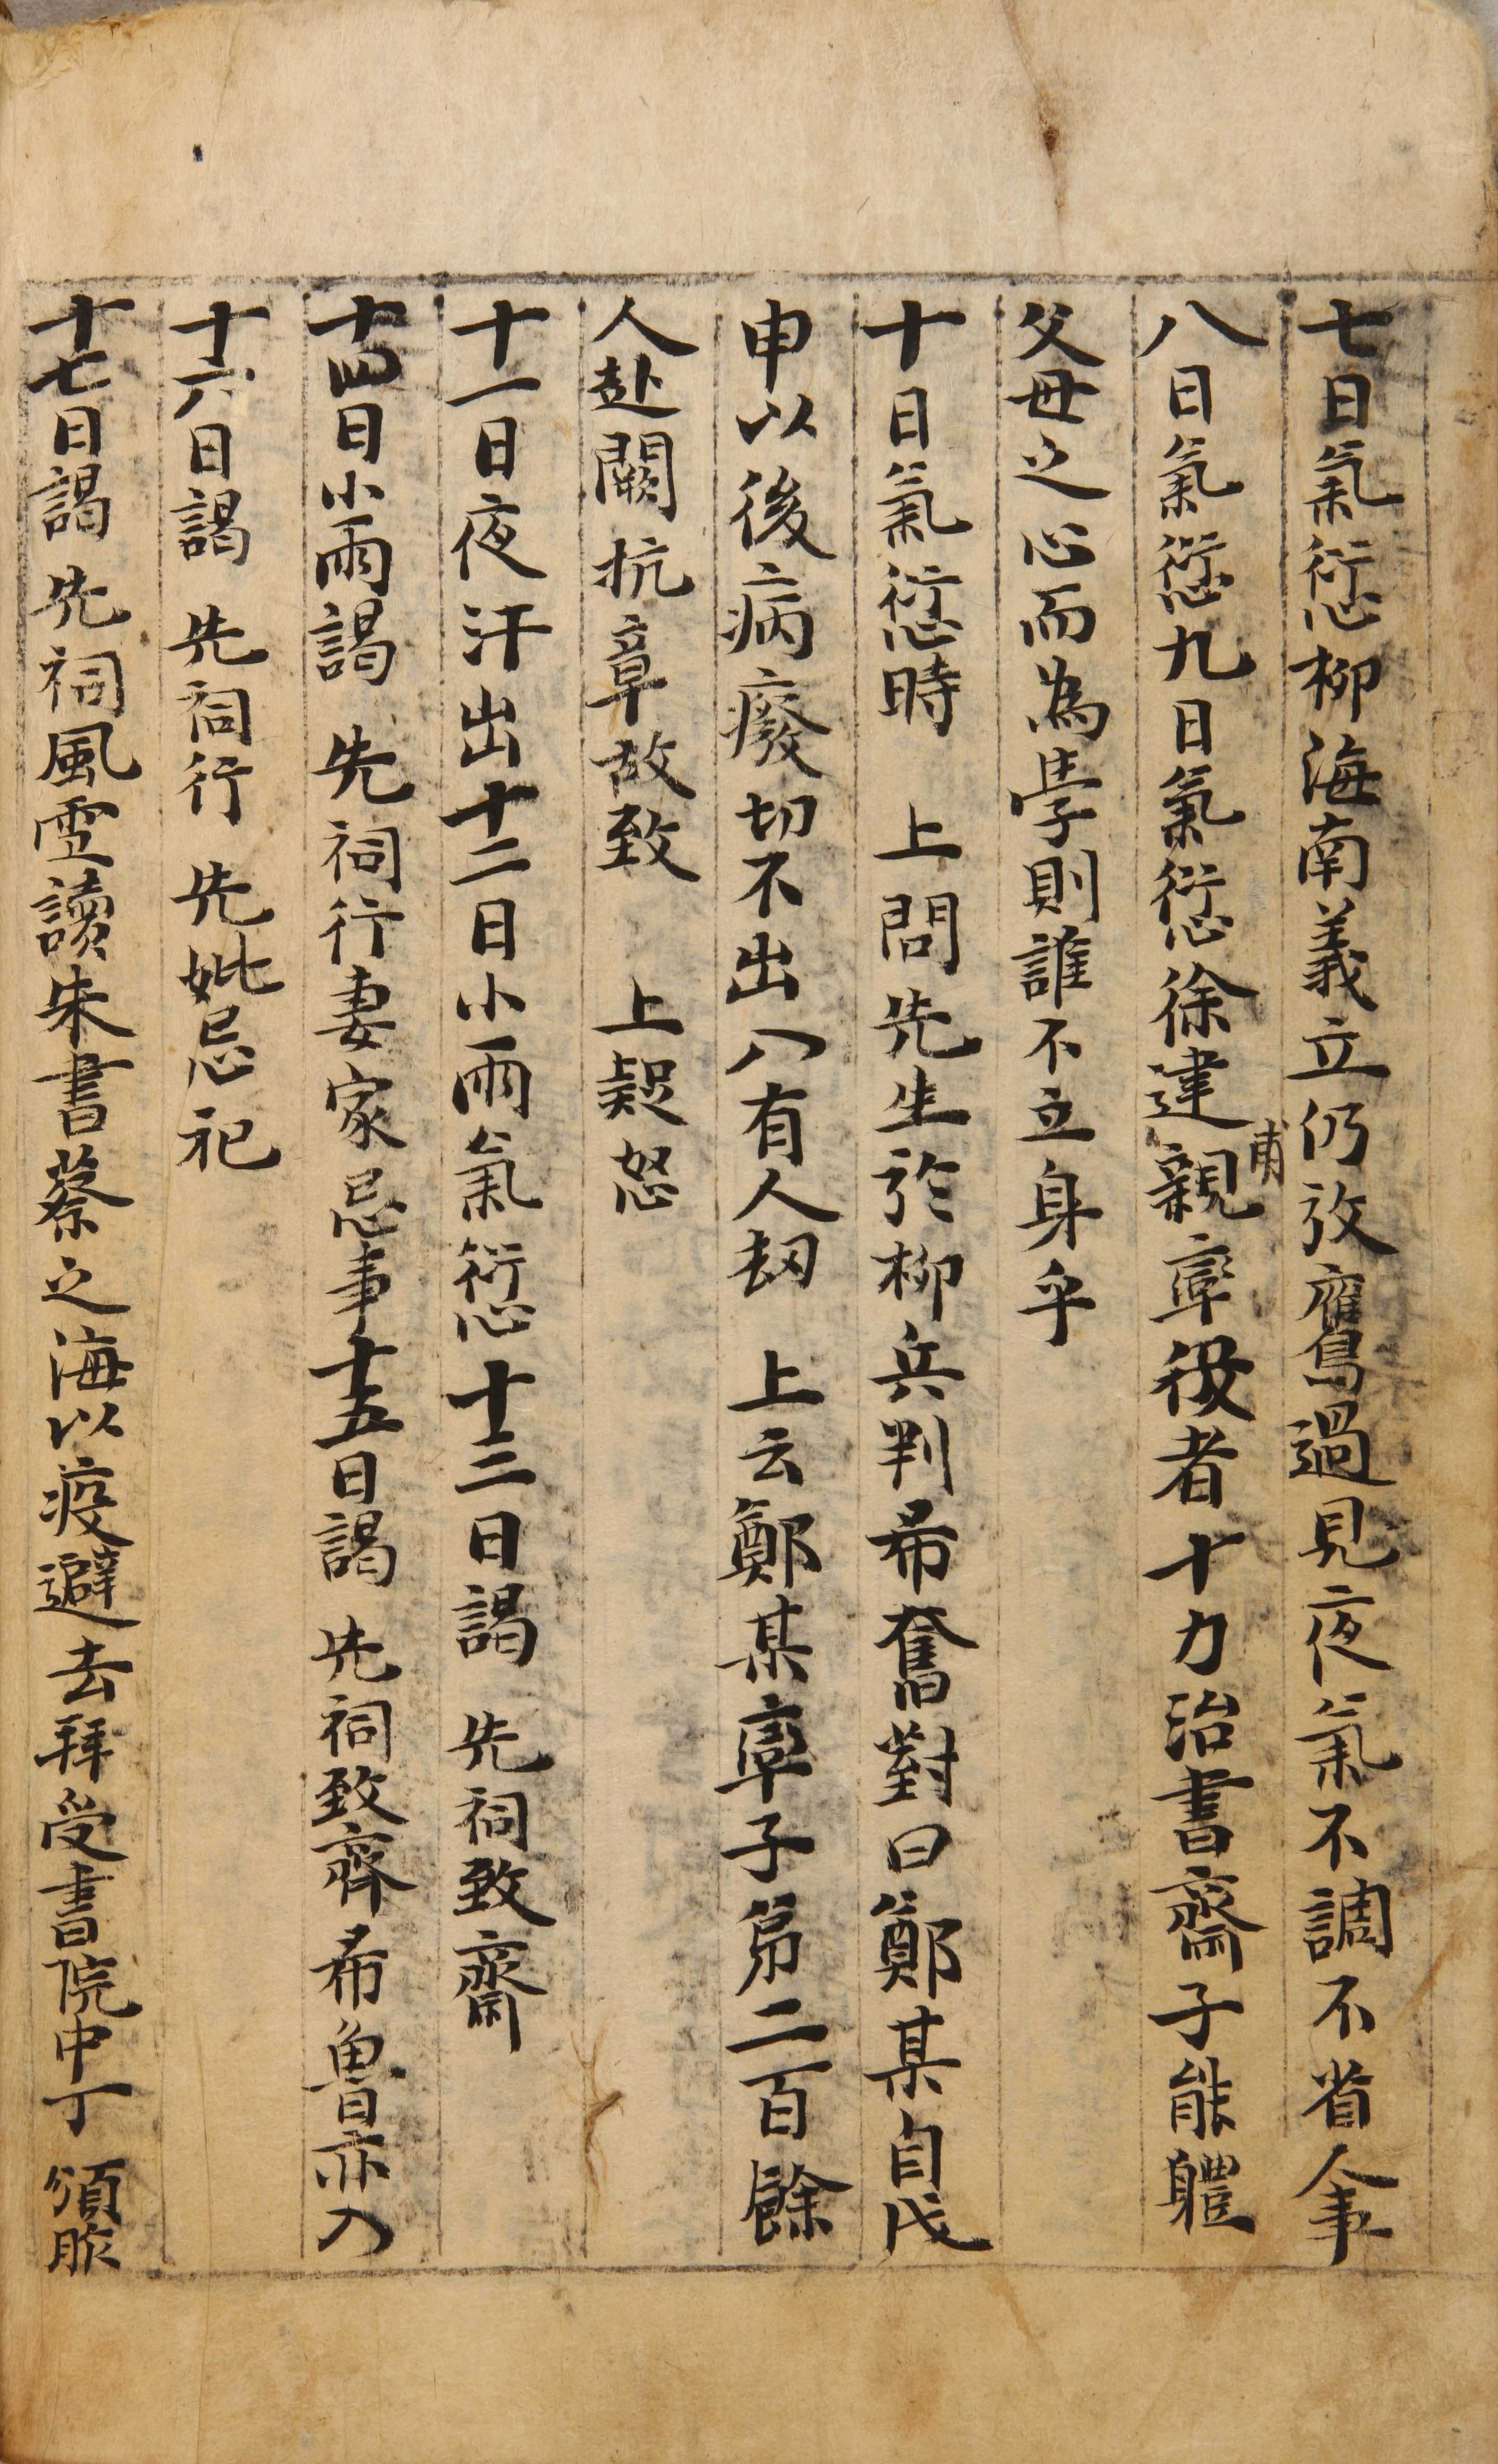 七日氣愆柳海南義立仍放鷹過見夜氣不調不省人事
八日氣愆九日氣愆徐建親甫率役者十力治書齋子能軆
父母之心而為學則誰不立身乎
十日氣愆時 上問先生於柳兵判希奮對曰鄭某自戊
申以後病癈切不出入有人劾 上云鄭某率子弟二百餘
人赴闕抗章故致 上疑怒
十一日夜汗出十二日小雨氣愆十三日謁 先祠致齋
十四日小雨謁 先祠行妻家忌事十五日謁 先祠致齊希魯亦入
十六日謁 先祠行 先妣忌祀
十七日謁 先祠風雪讀朱書蔡之海以疫避去拜受書院中丁 頒胙